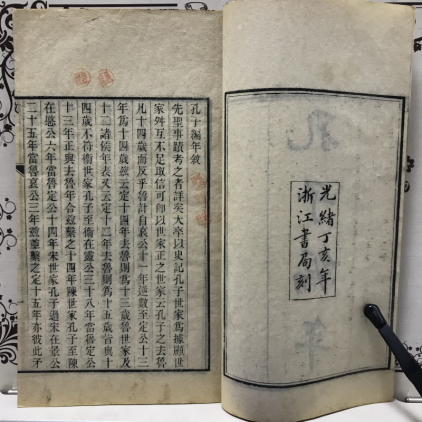 光緒丁亥年
浙江書局刻
孔子編年敘
先聖事蹟考之者詳矣大率以史記孔子世家爲據顧世
家舛互不足取信可以世家世家云孔子之去魯
凡十四歲而反乎魯計自哀公十一年逆數至定公十三
年爲十四歲茲云定十四年去魯則爲十三歲魯世家及
十二諸侯年表又云定十二年去魯則爲十五歲皆與十
四歲不符衞世家孔子至衞在靈公三十八年當魯定公
十三年正與去魯年合繫之十四年陳世家孔子至陳
在湣公六年當魯定公十四年宋世家孔子過宋在景公
二十五年當魯哀公三年繫之定十五年亦彼此矛